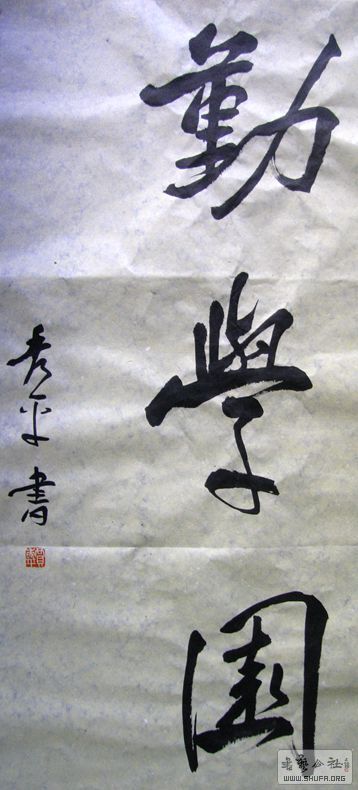 勤學園
秀平書
書藝公社
WWW.SHUFA.ORG